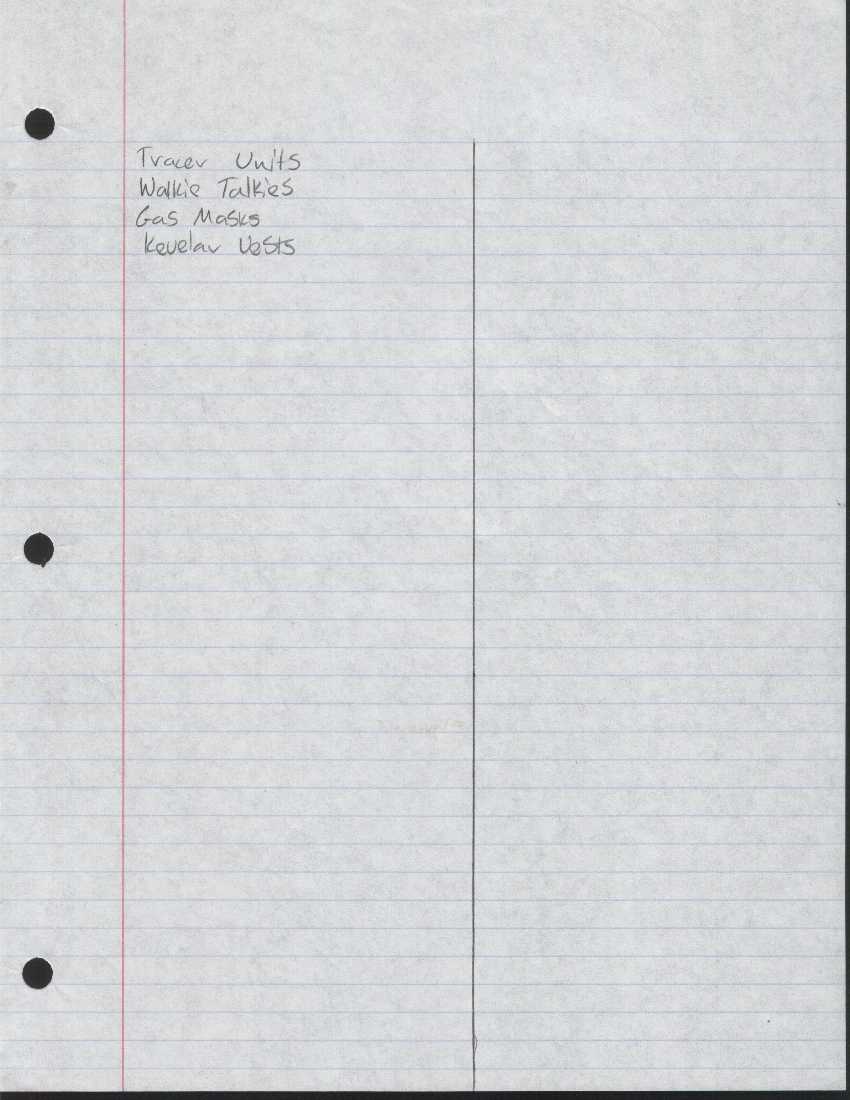 Tracer Units
Walkie Talkies
Gas Masks
Kevelar Vests